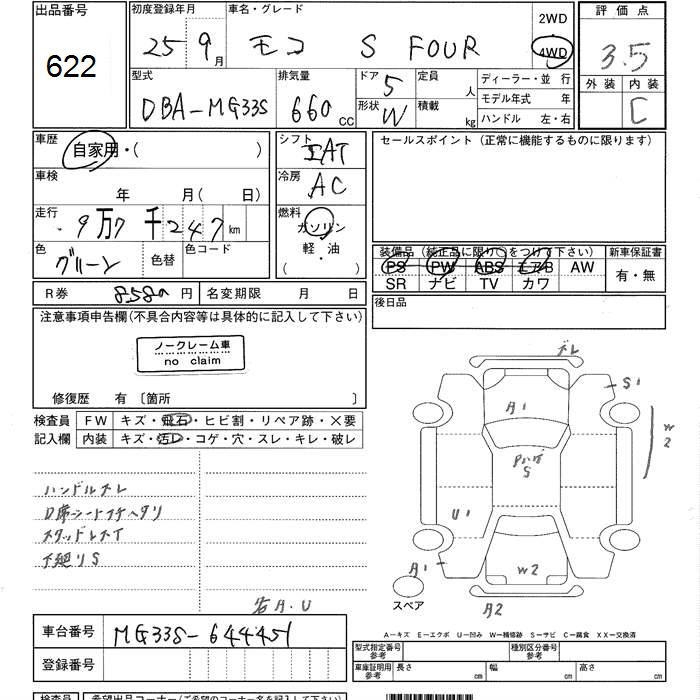 出品番号
622
初度登録年月
25年 9月
車名・グレード
モコ S FOUR
2WD
4WD
評価点
3.5
外装 内装
C
型式
DBA-MG33S
排気量
660 CC
ドア
5
形状
W
定員
人
積載
kg
ディーラー・並行
モデル年式 年
ハンドル 左・右
車歴
自家用・( )
車検
年 月( 日)
走行
9万7千247km
色
グリーン
色替
色コード
シフト
IAT
冷房
AC
燃料
ガソリン
軽・油
( )
セールスポイント(正常に機能するものに限ります)
装備品(純正品に限り○をつけて下さい)
PS PW ABS エアB AW
SR ナビ TV カワ
新車保証書
有・無
後日品
R券 8580円
名変期限 月 日
注意事項申告欄(不具合内容等は具体的に記入して下さい)
ノークレーム車
no claim
修復歴 有 [箇所 ]
検査員
記入欄
FW キズ・飛石・ヒビ割・リペア跡・×要
内装 キズ・汚レ・コゲ・穴・スレ・キレ・破レ
ハンドルスレ
D席シートコゲヘタリ
スタッドレスT
下廻りS
右A.U
ズレ
S1
A1
W2
S
U1
A1
W2
A2
スペア
A-キズ E-エクボ U-凹み W-補修跡 S-サビ C-腐食 XX-交換済
車台番号
MG33S-644451
登録番号
型式指定番号
参考
種別区分番号
参考
車庫証明用
参考
長さ cm
幅 cm
高さ cm
検査員
希望出品コーナー(ご希望のコーナー名